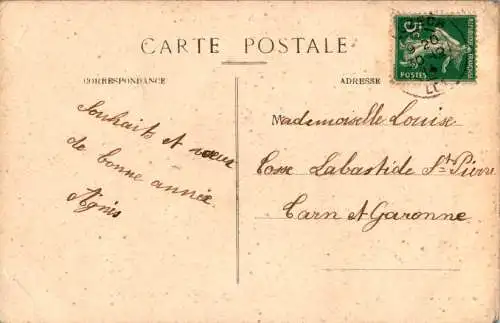 CARTE POSTALE
CORRESPONDANCE
ADRESSE
5c
REPUBLIQUE FRANÇAISE
POSTES
9-20
Souhaits et vœux
de bonne année
Agnès
Mademoiselle Louise
Cosse Labastide St Pierre
Tarn et Garonne